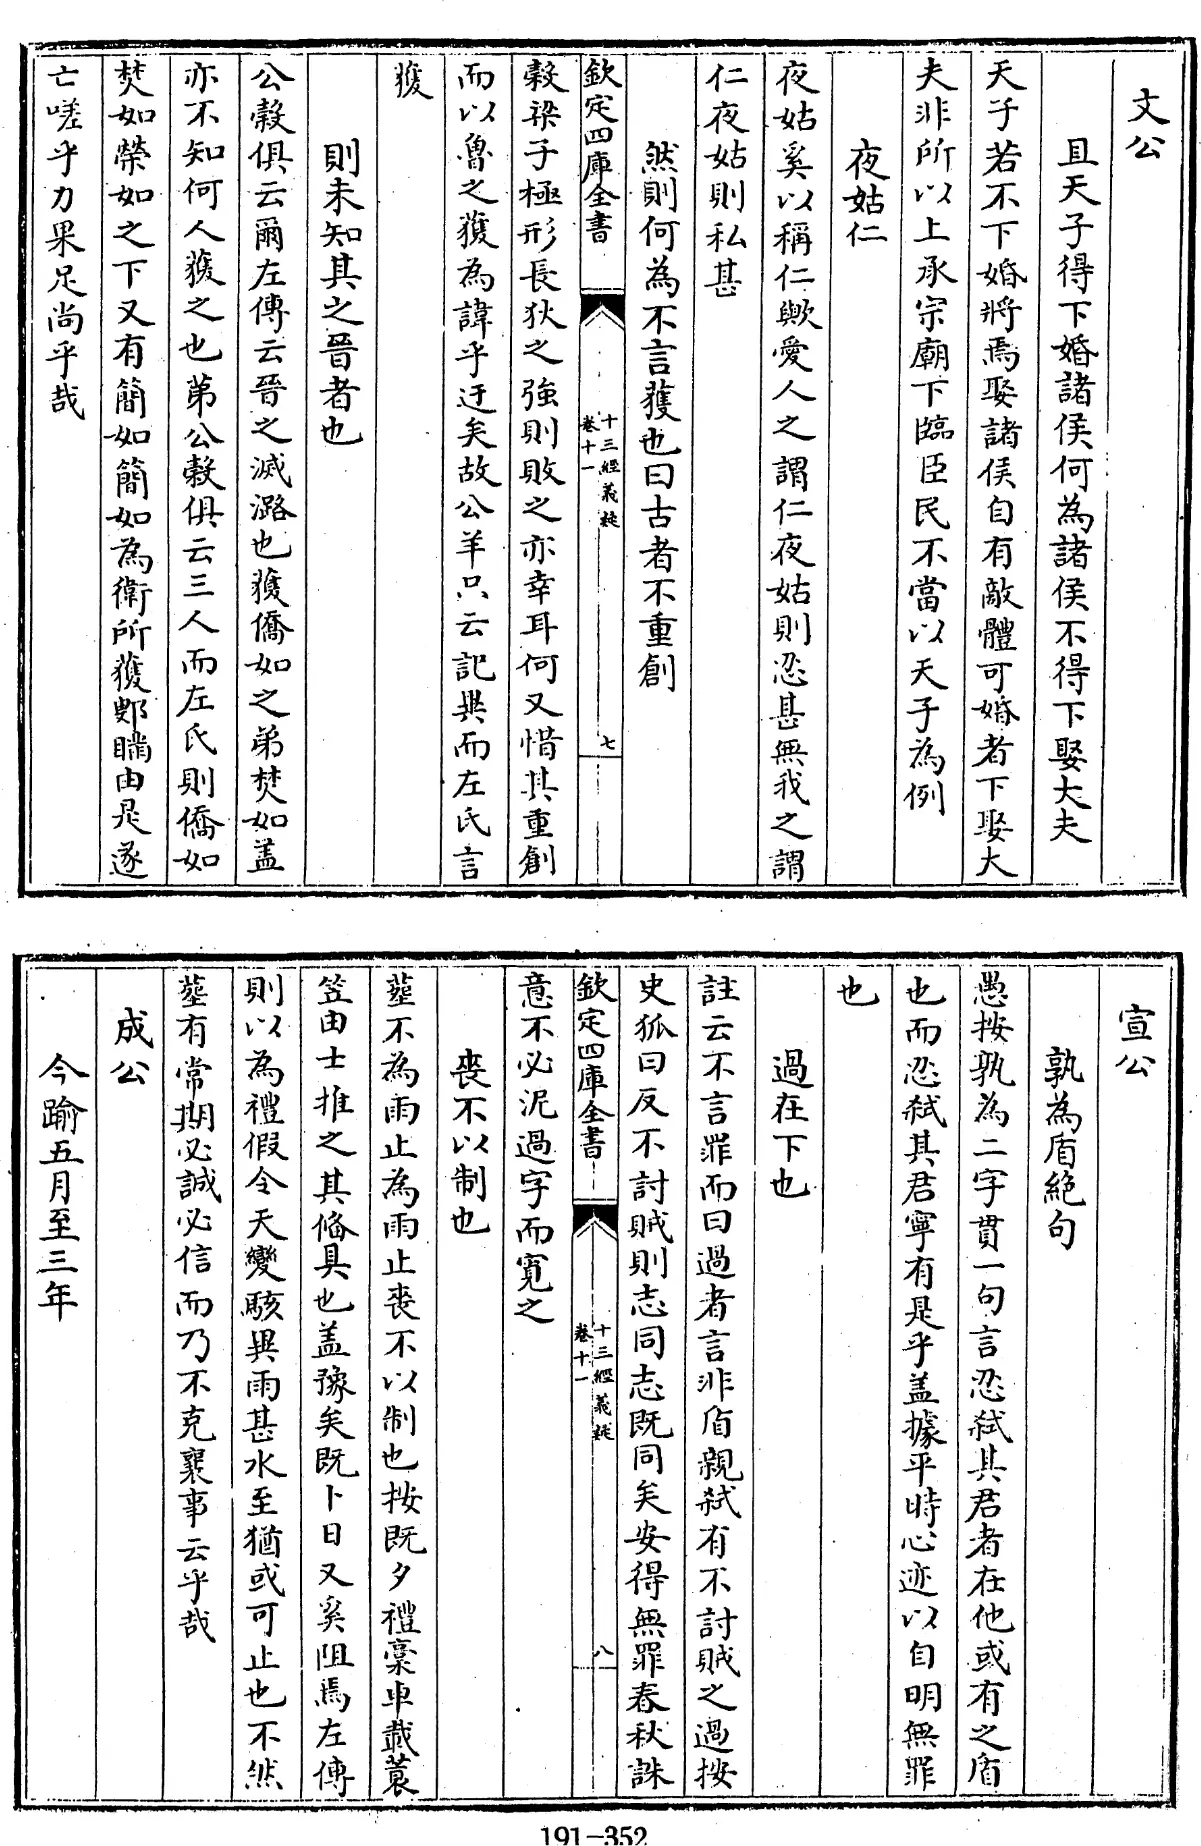 文公
且天子得下婚諸侯何為諸侯不得下娶大夫
天子若不下婚將焉娶諸侯自有敵體可婚者下娶大
夫非所以上承宗廟下臨臣民不當以天子為例
夜姑仁
夜姑奚以稱仁歟愛人之謂仁夜姑則忍甚無我之謂
仁夜姑則私甚
然則何為不言獲也曰古者不重創
欽定四庫全書
十三經義疑
卷十一
七
榖梁子極形長狄之強則敗之亦幸耳何又惜其重創
而以魯之獲為諱乎迂矣故公羊只云記異而左氏言
獲
則未知其之晉者也
公榖俱云爾左傳云晉之滅潞也獲僑如之弟焚如葢
亦不知何人獲之也第公榖俱云三人而左氏則僑如
焚如榮如之下又有簡如簡如為衛所獲鄋瞞由是遂
亡嗟乎力果足尚乎哉
宣公
孰為盾絶句
愚按孰為二字貫一句言忍弑其君者在他或有之盾
也而忍弑其君寧有是乎葢據平時心迹以自明無罪
也
過在下也
註云不言罪而曰過者言非盾親弑有不討賊之過按
史狐曰反不討賊則志同志既同矣安得無罪春秋誅
欽定四庫全書
十三經義疑
卷十一
八
意不必泥過字而寛之
喪不以制也
葬不為雨止為雨止喪不以制也按既夕禮槀車載蓑
笠由士推之其偹具也葢豫矣既卜日又奚阻焉左傳
則以為禮假令天變駭異雨甚水至猶或可止也不然
葬有常期必誠必信而乃不克襄事云乎哉
成公
今踰五月至三年
191-352